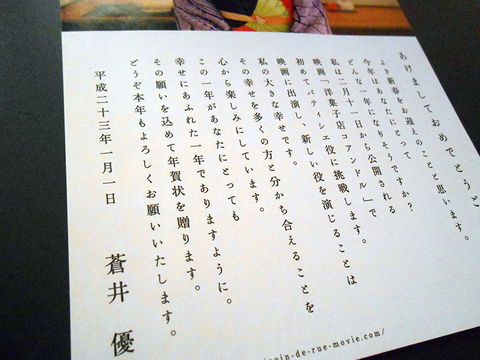 あけましておめでとうと
よき新春をお迎えのことと思います。
今年はあなたにとって
どんな一年になりそうですか?
私は二月十一日から公開される
映画「洋菓子店コアンドル」で
初めてパティシエ役に挑戦します。
映画に出演し、新しい役を演じることは
私の大きな幸せです。
その幸せを多くの方と分かち合えることを
心から楽しみにしています。
この一年があなたにとっても
幸せにあふれた一年でありますように。
その願いを込めて年賀状を贈ります。
どうぞ本年もよろしくお願いいたします。
平成二十三年一月一日
蒼井 優
oin-de-rue-movie.com/